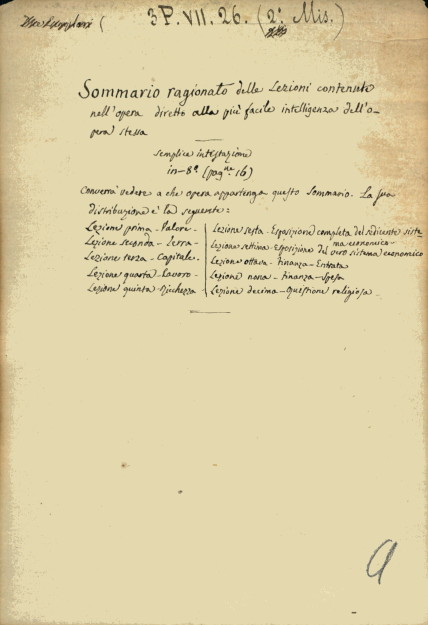 3 P. VII. 26. (2ª Mis.)
Sommario ragionato delle Lezioni contenute
nell'opera diretto alla più facile intelligenza dell'o-
pera stessa
semplice intestazione
in-8º (pag.ne 16)
Converrà vedere a che opera appartenga questo Sommario. La sua
distribuzione è la seguente:
Lezione prima - Valore.
Lezione seconda - Terra -
Lezione terza - Capitale.
Lezione quarta - Lavoro -
Lezione quinta - Ricchezza
Lezione sesta - Esposizione completa del sedicente siste-
ma economico -
Lezione settima - Esposizione del vero sistema economico
Lezione ottava - Finanza - Entrata
Lezione nona - Finanza - Spesa
Lezione decima - Questione religiosa -